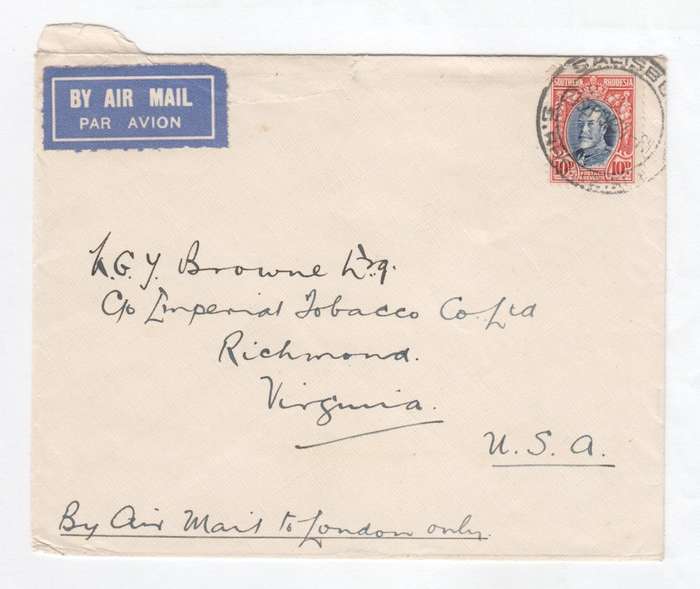 BY AIR MAIL
PAR AVION
SALISBU
SOUTHERN RHODESIA
10D 10D
POSTAGE
& REVENUE
G. Y. Browne Esq.
C/o Imperial Tobacco Co. Ltd
Richmond.
Virginia.
U. S. A.
By Air Mail to London only.